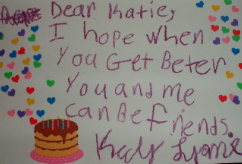 Dear Katie,
I hope when
You Get Beter
You and me
can Be friends.